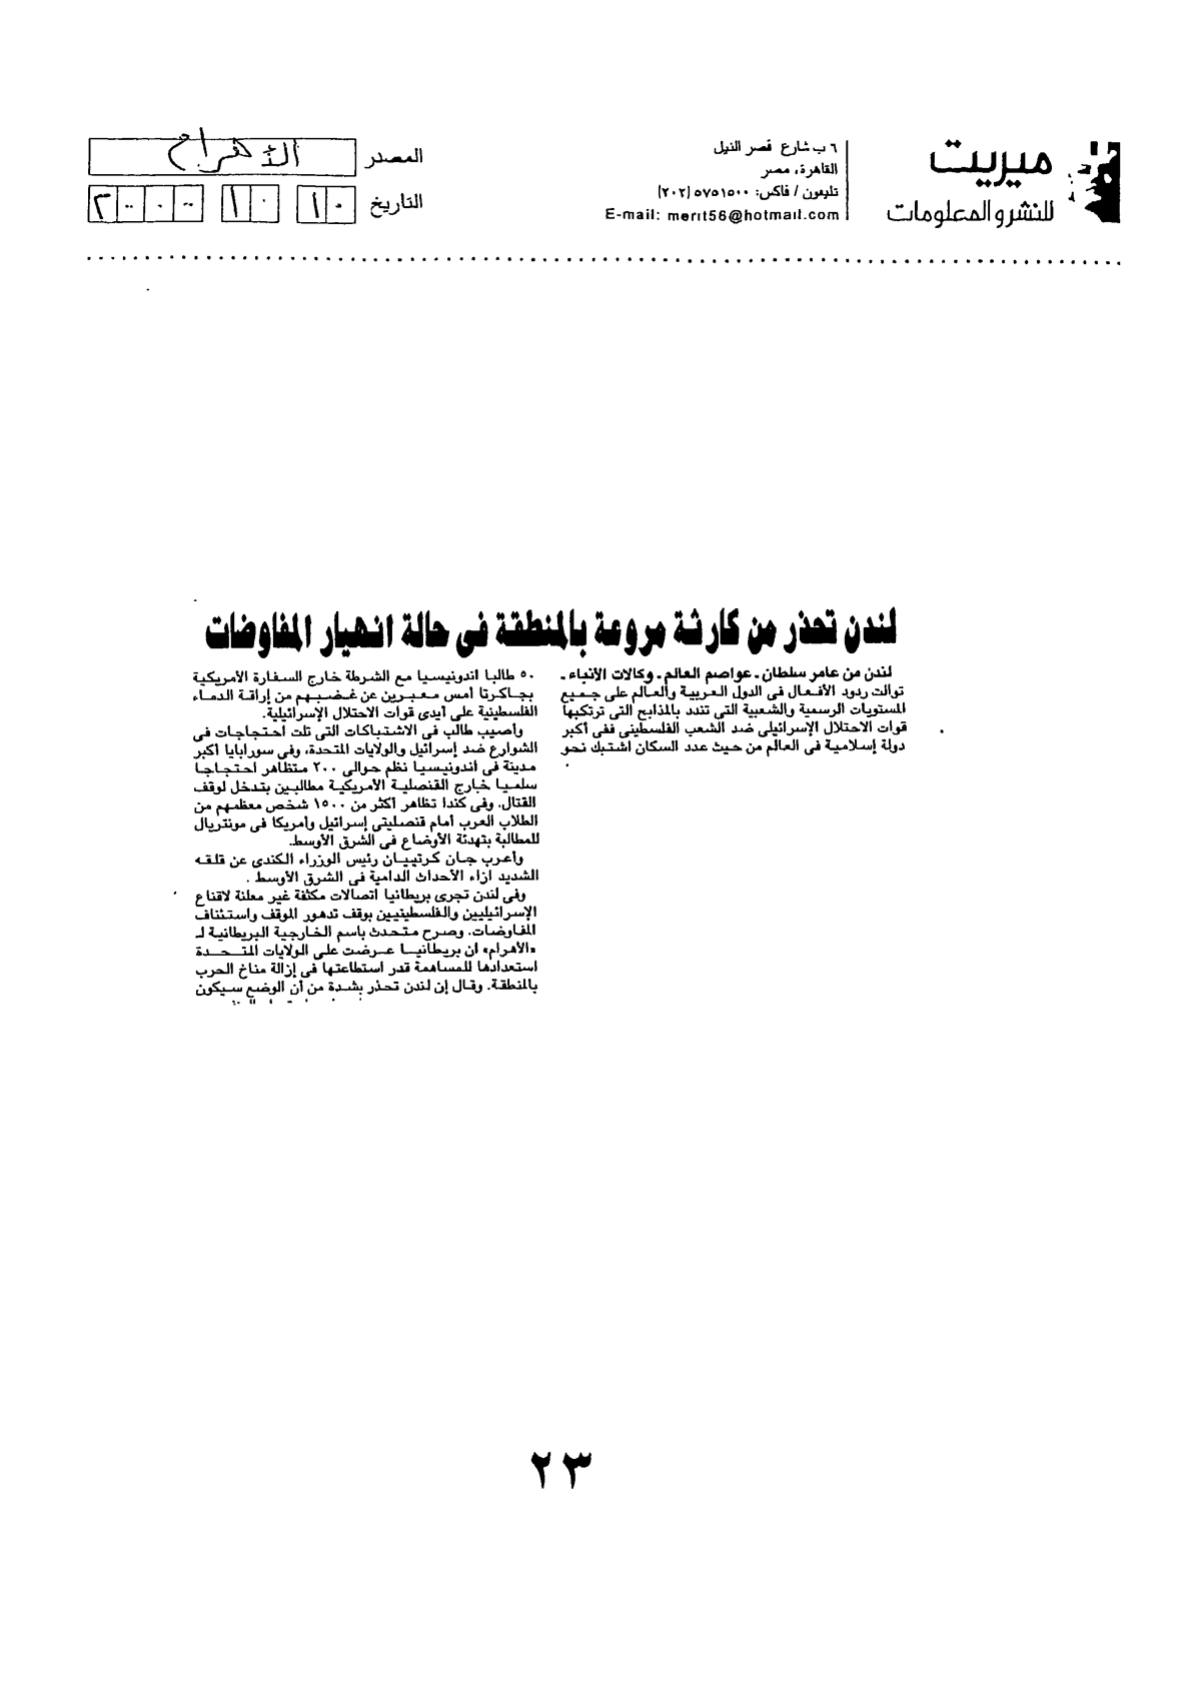 ميريت
للنشر والمعلومات
٦ ب شارع قصر النيل
القاهرة، مصر
تليفون / فاكس: ٥٧٥١٥٠٠ (٢٠٢)
E-mail: merit56@hotmail.com
المصدر الأهرام
التاريخ ١٠ ١٠ ٢٠٠٠
لندن تحذر من كارثة مروعة بالمنطقة فى حالة انهيار المفاوضات
لندن من عامر سلطان ـ عواصم العالم ـ وكالات الأنباء ـ
توالت ردود الأفعال فى الدول العربية والعالم على جميع
المستويات الرسمية والشعبية التى تندد بالمذابح التى ترتكبها
قوات الاحتلال الإسرائيلى ضد الشعب الفلسطينى ففى أكبر
دولة إسلامية فى العالم من حيث عدد السكان اشتبك نحو
٥٠ طالبا اندونيسيا مع الشرطة خارج السفارة الأمريكية
بجاكرتا أمس معبرين عن غضبهم من إراقة الدماء
الفلسطينية على أيدى قوات الاحتلال الإسرائيلية.
وأصيب طالب فى الاشتباكات التى تلت احتجاجات فى
الشوارع ضد إسرائيل والولايات المتحدة، وفى سورابايا أكبر
مدينة فى اندونيسيا نظم حوالى ٢٠٠ متظاهر احتجاجا
سلميا خارج القنصلية الأمريكية مطالبين بتدخل لوقف
القتال. وفى كندا تظاهر أكثر من ١٥٠٠ شخص معظمهم من
الطلاب العرب أمام قنصليتى إسرائيل وأمريكا فى مونتريال
للمطالبة بتهدئة الأوضاع فى الشرق الأوسط.
وأعرب جان كرتييان رئيس الوزراء الكندى عن قلقه
الشديد ازاء الأحداث الدامية فى الشرق الأوسط .
وفى لندن تجرى بريطانيا اتصالات مكثفة غير معلنة لاقناع
الإسرائيليين والفلسطينيين بوقف تدهور الموقف واستئناف
المفاوضات. وصرح متحدث باسم الخارجية البريطانية لـ
«الأهرام» ان بريطانيا عرضت على الولايات المتحدة
استعدادها للمساهمة قدر استطاعتها فى إزالة مناخ الحرب
بالمنطقة. وقال إن لندن تحذر بشدة من أن الوضع سيكون
٢٣